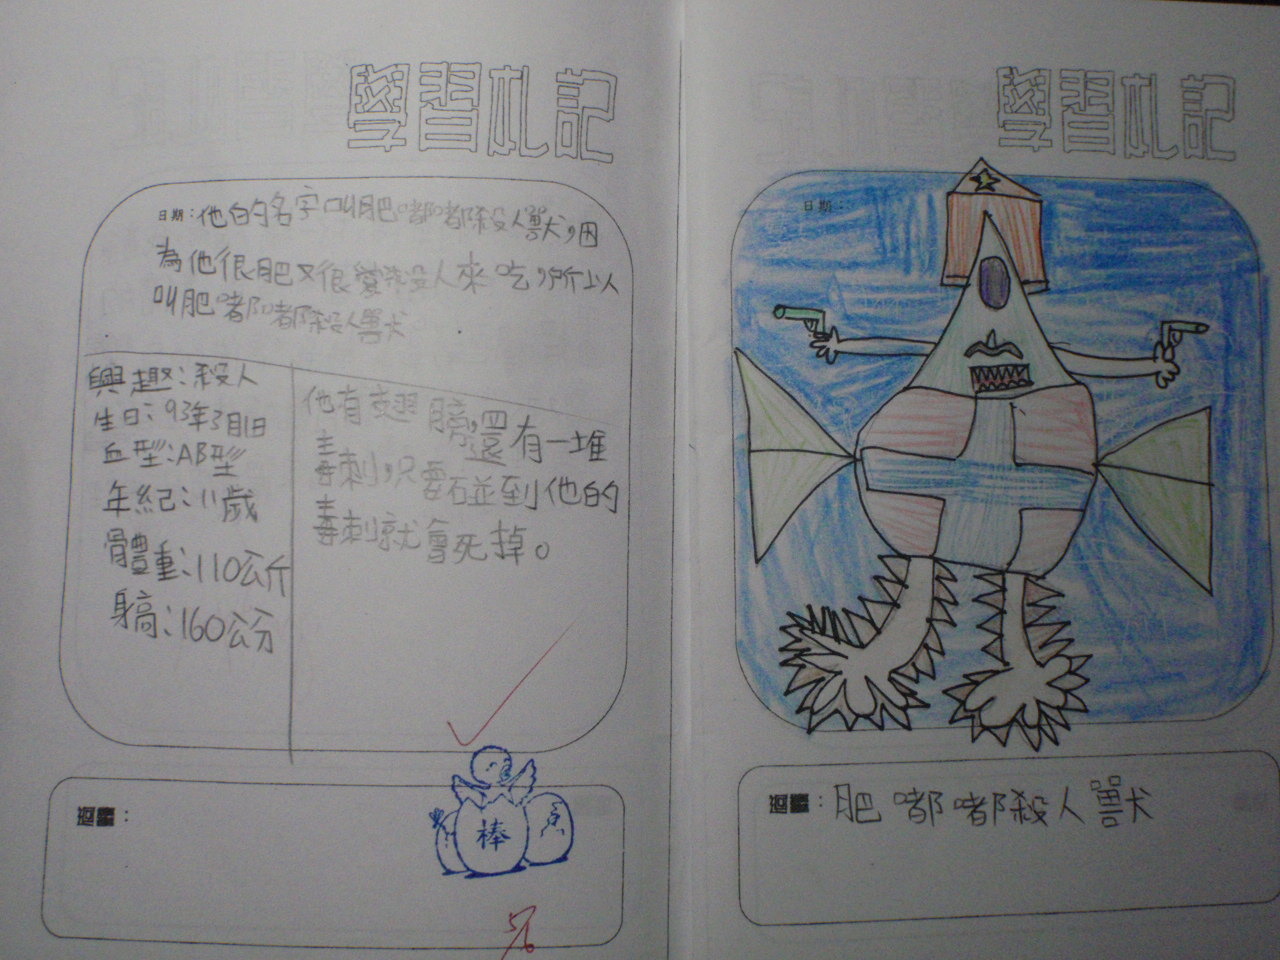 學習札記
日期：他的名字叫肥嘟嘟殺人獸，因
為他很肥又很愛殺人來吃，所以
叫肥嘟嘟殺人獸
興趣：殺人
生日：93年3月1日
血型：AB型
年紀：11歲
體重：110公斤
身高：160公分
他有翅膀，還有一堆
毒刺，只要碰到他的
毒刺就會死掉。
迴響：
棒
5/6
學習札記
日期：
迴響：肥嘟嘟殺人獸